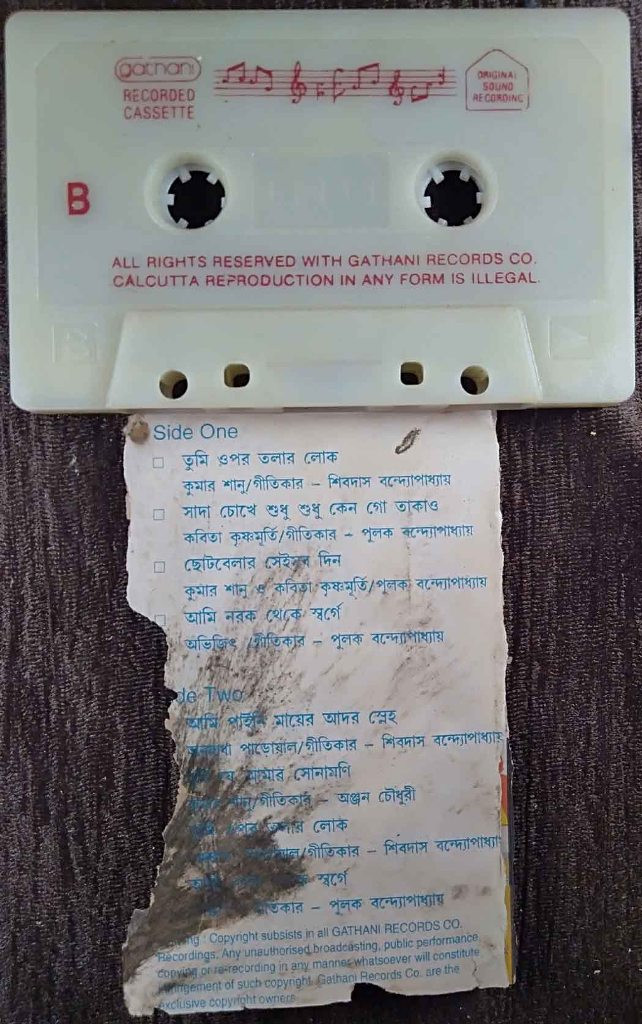 gathani
RECORDED
CASSETTE
ORIGINAL
SOUND
RECORDING
B
ALL RIGHTS RESERVED WITH GATHANI RECORDS CO.
CALCUTTA REPRODUCTION IN ANY FORM IS ILLEGAL.
Side One
তুমি ওপর তলার লোক
কুমার শানু/গীতিকার – শিবদাস বন্দ্যোপাধ্যায়
সাদা চোখে শুধু শুধু কেন গো তাকাও
কবিতা কৃষ্ণমূর্তি/গীতিকার – পুলক বন্দ্যোপাধ্যায়
ছোটবেলার সেইসব দিন
কুমার শানু ও কবিতা কৃষ্ণমূর্তি/পুলক বন্দ্যোপাধ্যায়
আমি নরক থেকে স্বর্গে
অভিজিৎ /গীতিকার – পুলক বন্দ্যোপাধ্যায়
de Two
আমি পাইনি মায়ের আদর স্নেহ
পাড়োয়াল/গীতিকার – শিবদাস বন্দ্যোপাধ্যায়
যে আমার সোনামণি
শানু/গীতিকার – অঞ্জন চৌধুরী
ওপর তলার লোক
গীতিকার – শিবদাস বন্দ্যোপাধ্যায়
স্বর্গে
গীতিকার – পুলক বন্দ্যোপাধ্যায়
ng : Copyright subsists in all GATHANI RECORDS CO.
Recordings. Any unauthorised broadcasting, public performance
copying or re-recording in any manner whatsoever will constitute
infringement of such copyright. Gathani Records Co. are the
exclusive copyright owners